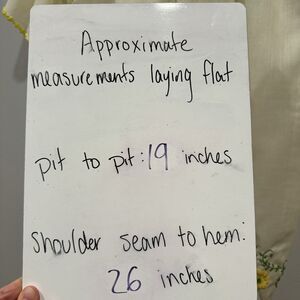 Approximate
measurements laying flat
pit to pit: 19 inches
shoulder seam to hem:
26 inches